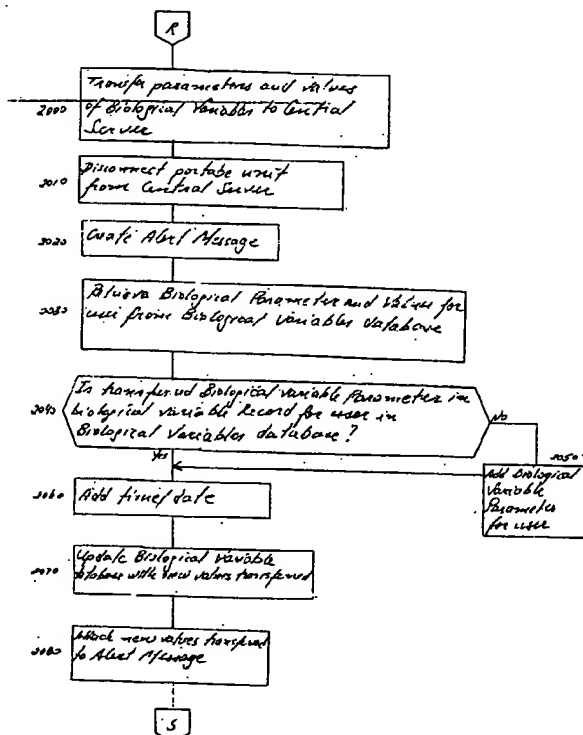 R
Transfer parameters and values
of Biological Variables to Central
Server
2000
Disconnect portabe unit
from Central Server
2010
Create Alert Message
2020
Retrieve Biological Parameter and Values for
user from Biological Variables database
2030
Is transferred Biological variable Parameter in
biological variable Record for user in
Biological Variables database?
2040
No
Yes
2050
Add Biological
Variable
Parameter
for user
Add time/date
2060
Update Biological Variable
database with new values transferred
2070
Attach new values transferred
to Alert Message
2080
S